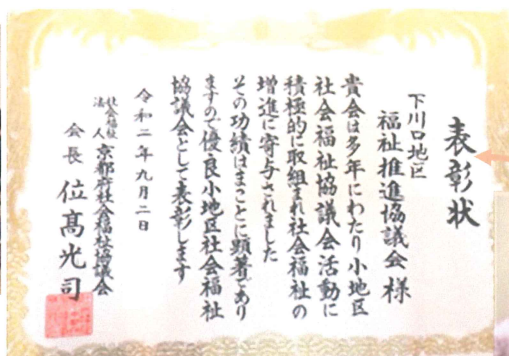 表彰状
下川口地区
福祉推進協議会様
貴会は多年にわたり小地区
社会福祉協議会活動に
積極的に取組まれ社会福祉の
増進に寄与されました
その功績はまことに顕著であり
ますので優良小地区社会福祉
協議会として表彰します
令和二年九月二日
社会福祉法人 京都府社会福祉協議会
会長 位髙光司